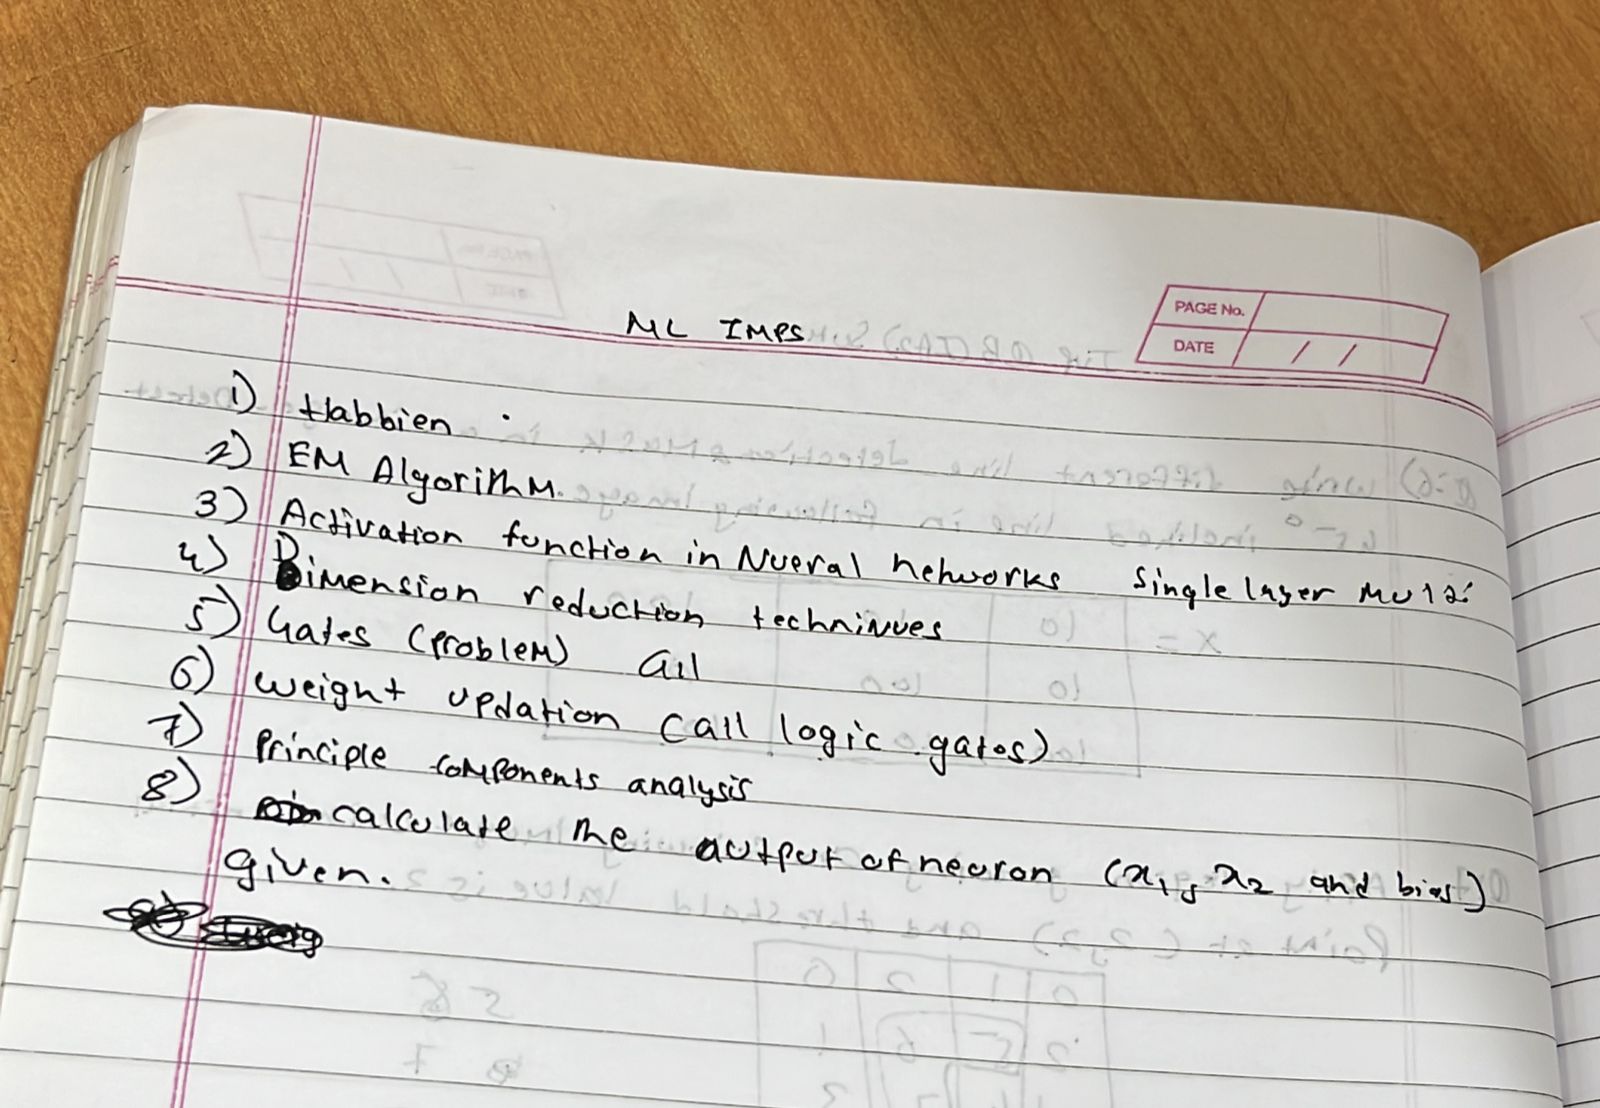 ML IMPS
PAGE No.
DATE / /
1) Habbien .
2) EM Algorithm.
3) Activation function in Nueral networks Single layer
4) Dimension reduction techninues
5) Gates (problem) all
6) weight updation (all logic gates)
7) Principle components analysis
8) calculate the output of neuron (x1, x2 and bias)
given.